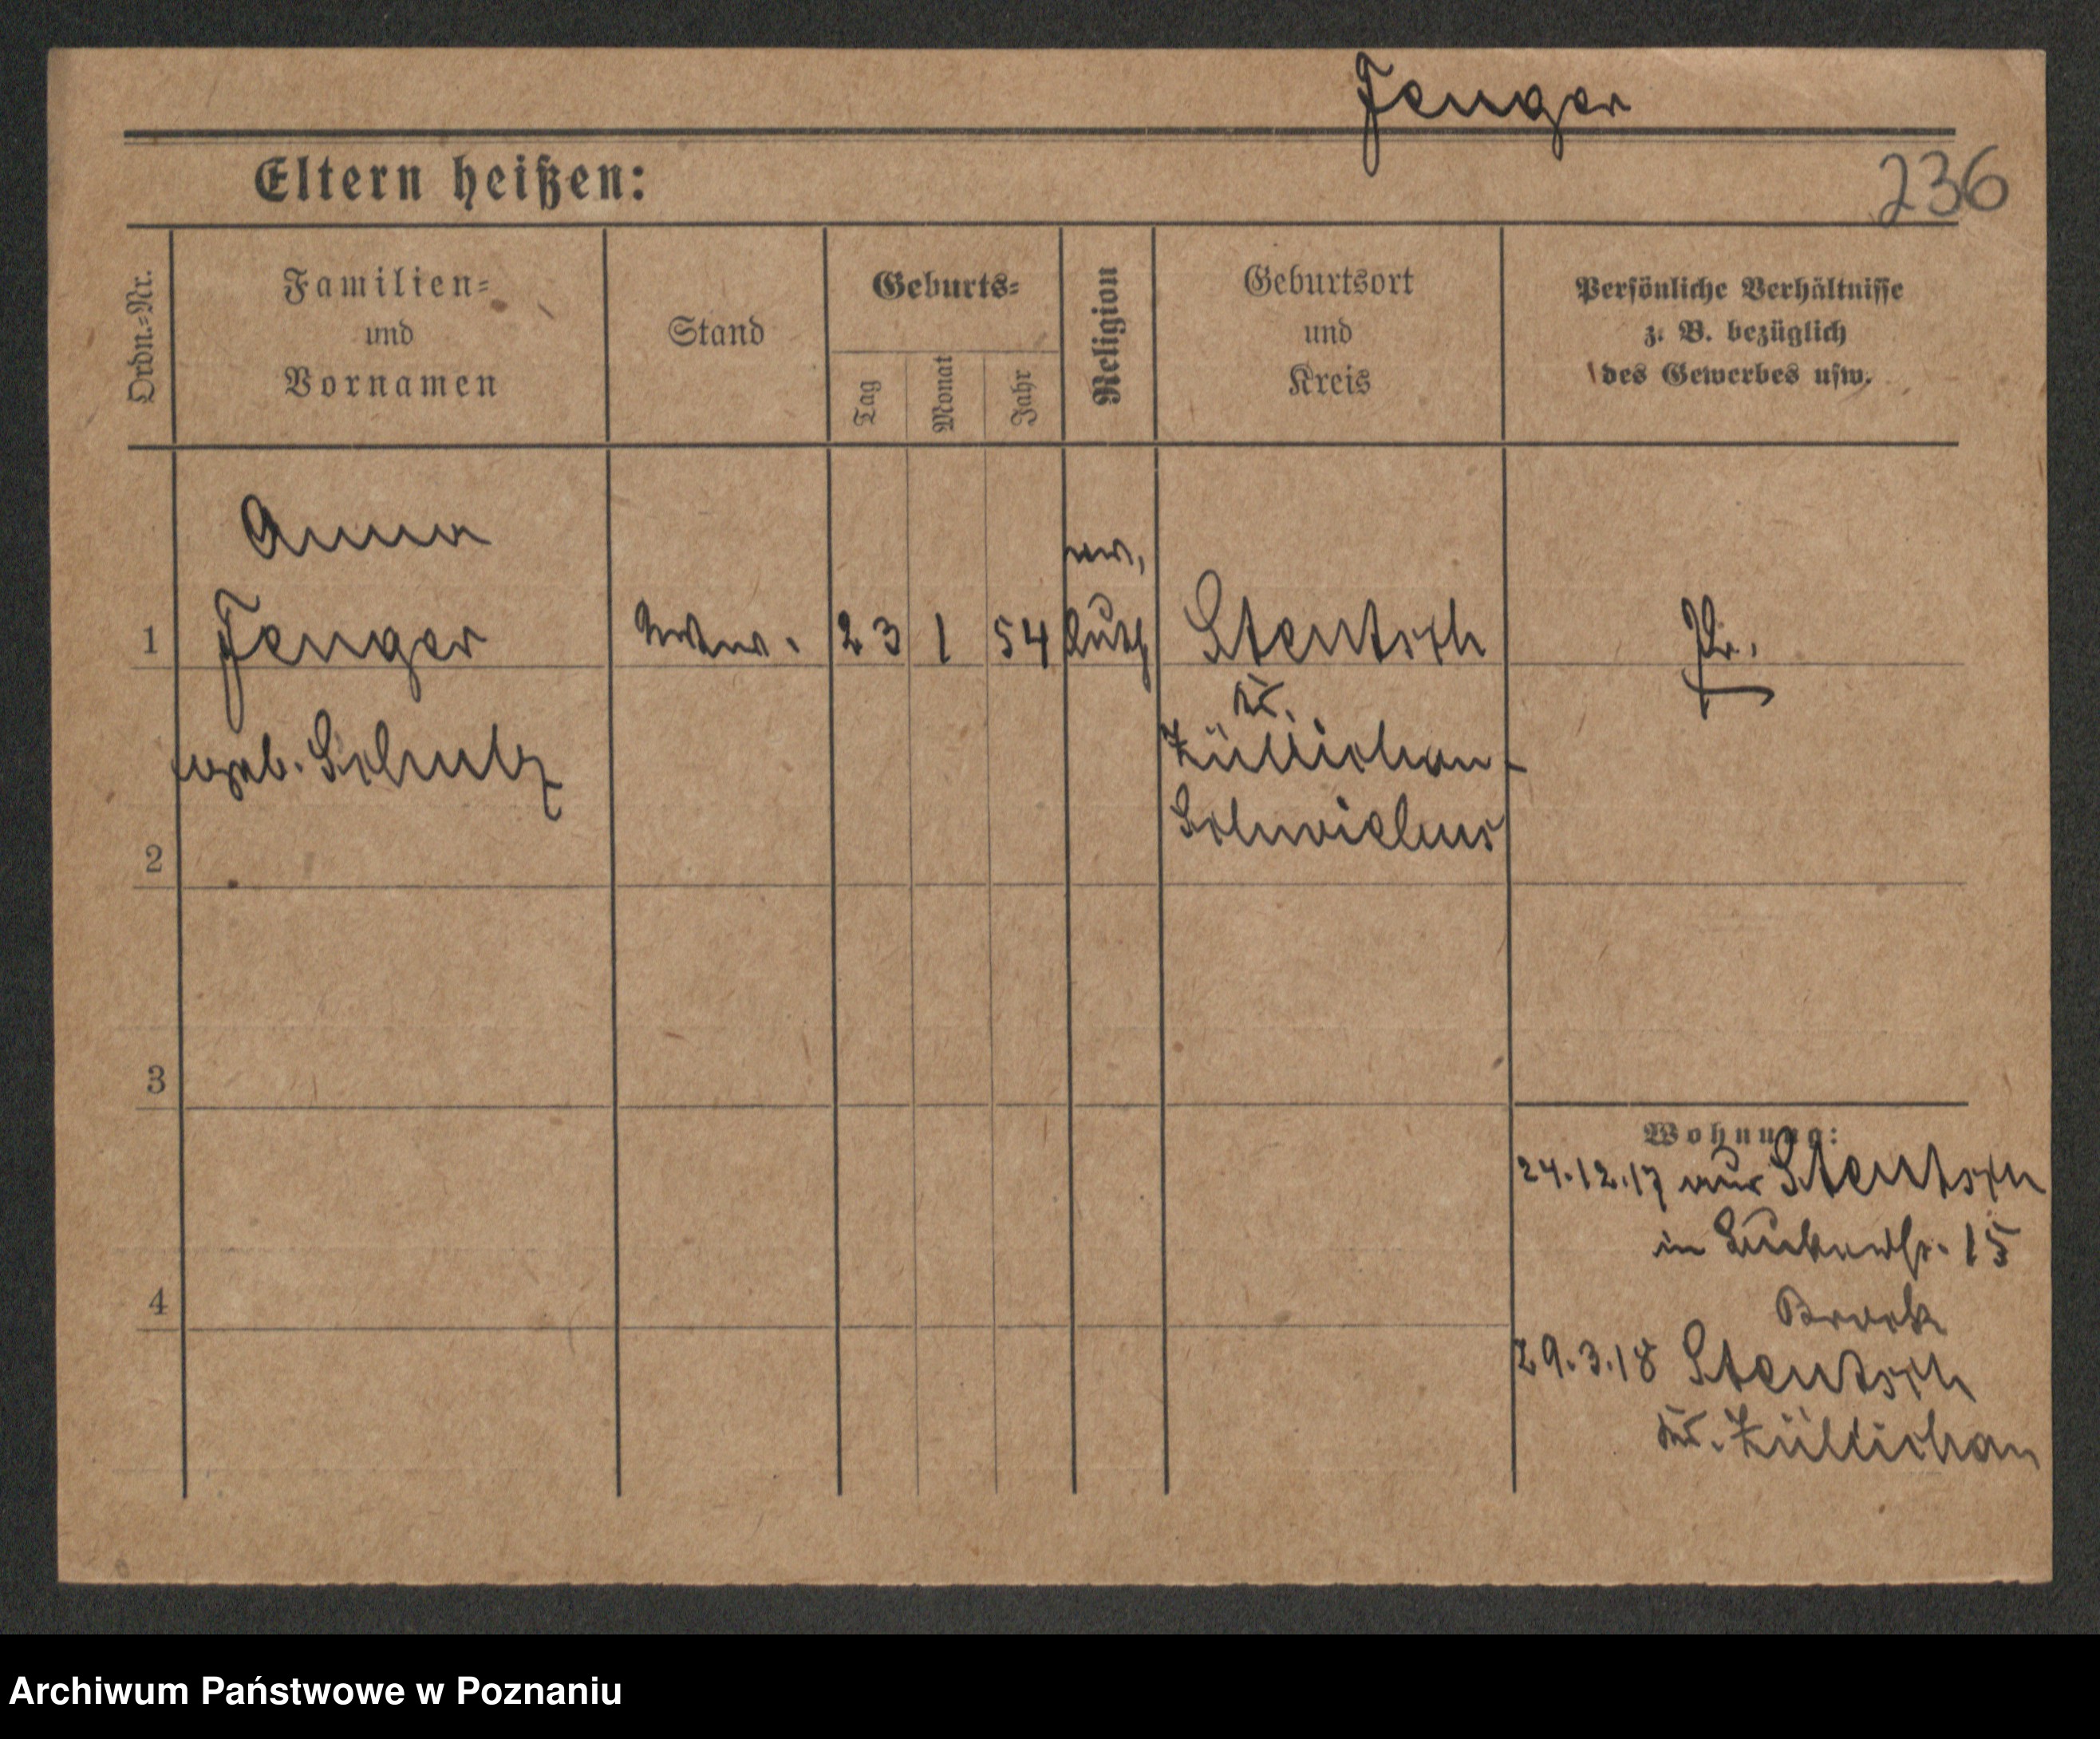 Fenger
236
Eltern heißen:
Ordn.=Nr.
Familien=
und
Vornamen
Stand
Geburts=
Tag
Monat
Jahr
Religion
Geburtsort
und
Kreis
Persönliche Verhältnisse
z. B. bezüglich
des Gewerbes usw.
Anna
ev.
1 Fenger Wwe. 23 1 54 luth Stentsch Pr.
Kr.
geb. Schulz Züllichau-
Schwiebus
2
3
Wohnung:
24.12.17 aus Stentsch
in 15
4
29.3.18 Stentsch
Kr. Züllichau
Archiwum Państwowe w Poznaniu